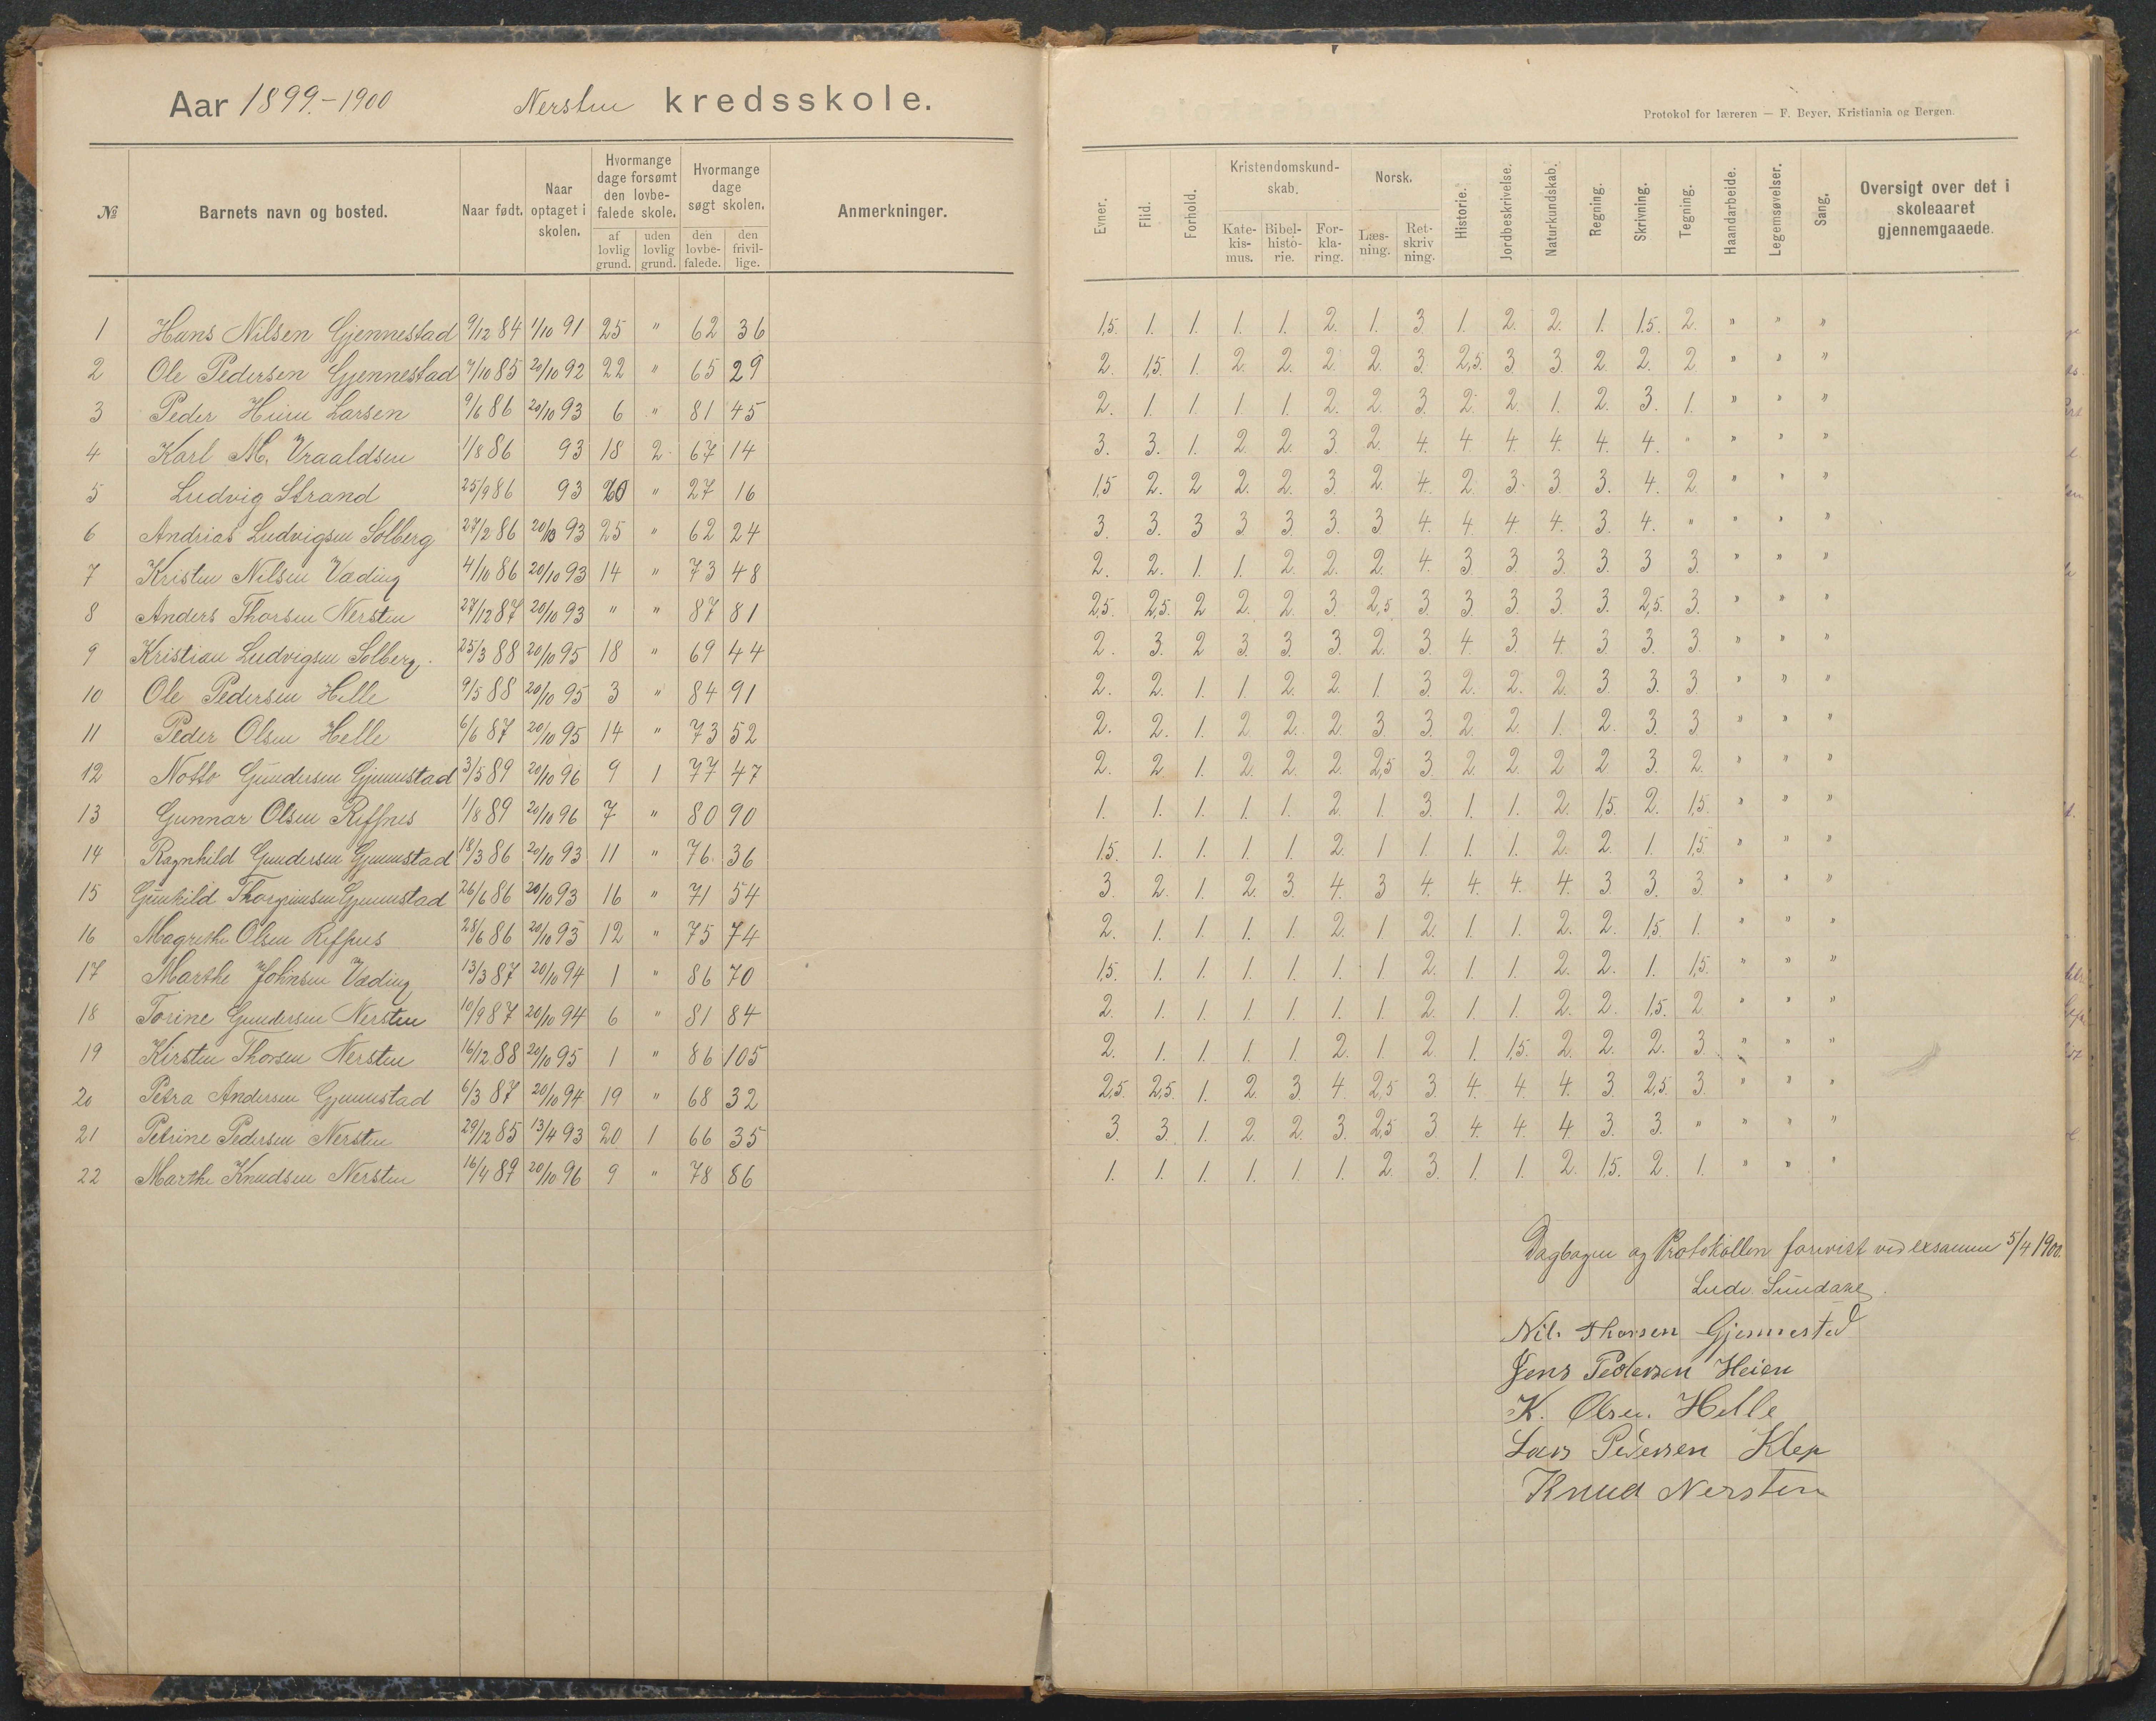 Aar 1899.-1900 Nersten kredsskole.
Protokol for læreren — F. Beyer, Kristiania og Bergen.
№ Barnets navn og bosted. Naar født. Naar optaget i skolen. Hvormange dage forsømt den lovbefalede skole. af lovlig grund. uden lovlig grund. Hvormange dage søgt skolen. den lovbefalede. den frivillige. Anmerkninger.
Evner. Flid. Forhold. Kristendomskundskab. Katekismus. Bibelhistorie. Forklaring. Norsk. Læsning. Retskrivning. Historie. Jordbeskrivelse. Naturkundskab. Regning. Skrivning. Tegning. Haandarbeide. Legemsøvelser. Sang. Oversigt over det i skoleaaret gjennemgaaede.
1 Hans Nilsen Gjennestad 9/12 84 1/10 91 25 " 62 36 1,5. 1. 1. 1. 1. 2. 1. 3 1. 2. 2. 1. 1,5. 2. " " "
2 Ole Pedersen Gjennestad 7/10 85 20/10 92 22 " 65 29 2. 1,5. 1. 2. 2. 2. 2. 3. 2,5. 3 3. 2. 2. 2. " " "
3 Peder Larsen 9/6 86 20/10 93 6 " 81 45 2. 1. 1. 1. 1. 2. 2. 3. 2. 2. 1. 2. 3. 1. " " "
4 Karl M. Vraaldsen 1/8 86 93 18 2 67 14 3. 3. 1. 2. 2. 3. 2. 4. 4. 4. 4. 4. 4. " " " "
5 Ludvig Strand 25/9 86 93 20 " 27 16 1,5 2. 2 2. 2. 3. 2. 4. 2. 3. 3. 3. 4. 2. " " "
6 Andrias Ludvigsen Solberg 27/2 86 20/10 93 25 " 62 24 3. 3. 3 3. 3. 3. 3 4. 4. 4. 4. 3. 4. " " " "
7 Kristen Nilsen Væding 4/10 86 20/10 93 14 " 73 48 2. 2. 1. 1. 2. 2. 2. 4. 3 3. 3. 3. 3 3. " " "
8 Anders Thorsen Nersten 27/12 87 20/10 93 " " 87 81 2,5. 2,5. 2 2. 2. 3 2,5 3 3 3. 3. 3. 2,5. 3. " " "
9 Kristian Ludvigsen Solberg 25/3 88 20/10 95 18 " 69 44 2. 3. 2 3. 3. 3. 2. 3. 4. 3. 4. 3 3. 3. " " "
10 Ole Pedersen Helle 9/5 88 20/10 95 3 " 84 91 2. 2. 1. 1. 2. 2. 1. 3. 2. 2. 2. 3. 3. 3. " " "
11 Peder Olsen Helle 6/6 87 20/10 95 14 " 73 52 2. 2. 1. 2 2. 2. 3. 3. 2. 2. 1. 2. 3. 3 " " "
12 Notto Gundersen Gjennestad 3/5 89 20/10 96 9 1 77 47 2. 2 1. 2. 2. 2. 2,5 3. 2. 2. 2 2 3. 2. " " "
13 Gunnar Olsen Riffnes 1/8 89 20/10 96 7 " 80 90 1. 1. 1. 1. 1. 2. 1. 3. 1. 1. 2. 1,5. 2. 1,5. " " "
14 Ragnhild Gundersen Gjennestad 18/3 86 20/10 93 11 " 76 36 1,5. 1. 1. 1. 1. 2. 1 1. 1. 1. 2. 2. 1. 1,5. " " "
15 Gunhild Gjennestad 26/6 86 20/10 93 16 " 71 54 3. 2. 1. 2. 3. 4. 3 4. 4. 4. 4. 3 3. 3. " " "
16 Magrethe Olsen Riffnes 28/6 86 20/10 93 12 " 75 74 2. 1. 1. 1. 1. 2. 1 2. 1. 1. 2. 2. 1,5. 1. " " "
17 Marthe Johnsen Væding 13/3 87 20/10 94 1 " 86 70 1,5. 1. 1. 1. 1. 1. 1 2. 1. 1. 2. 2. 1. 1,5. " " "
18 Torine Gundersen Nersten 10/9 87 20/10 94 6 " 81 84 2. 1. 1. 1. 1. 1. 1. 2. 1. 1. 2. 2. 1,5. 2. " " "
19 Kirsten Thorsen Nersten 16/12 88 20/10 95 1 " 86 105 2. 1. 1. 1. 1. 2. 1. 2. 1 1,5. 2. 2. 2. 3 " " "
20 Petra Andersen Gjennestad 6/3 87 20/10 94 19 " 68 32 2,5. 2,5. 1. 2. 3. 4. 2,5 3. 4. 4. 4. 3 2,5. 3. " " "
21 Petrine Pedersen Nersten 29/12 85 13/4 93 20 1 66 35 3. 3. 1. 2. 2. 3. 2,5 3 4. 4. 4. 3. 3. " " " "
22 Marthe Knudsen Nersten 16/4 89 20/10 96 9 " 78 86 1. 1. 1. 1. 1. 1. 2. 3. 1. 1. 2. 1,5. 2. 1. " " "
Dagbogen og Protokollen forevist ved exsamen 5/4 1900.
Ludv. Sundaae
Nils Thorsen Gjennestad
Jens Pedersen Heien
K. Olsen. Helle
Lars Pedersen Klep
Knud Nersten